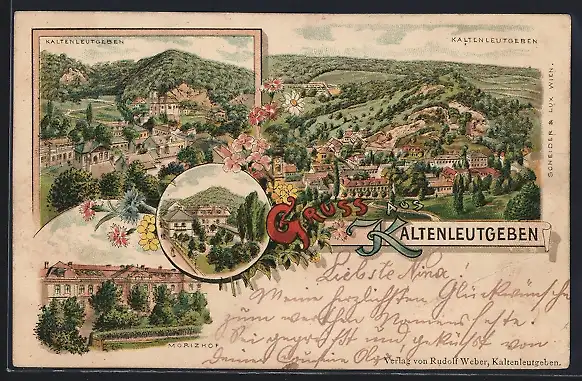 KALTENLEUTGEBEN
KALTENLEUTGEBEN
SCHNEIDER & LUX WIEN.
GRUSS AUS
KALTENLEUTGEBEN
MORIZHOF.
Liebste Nina!
Meine herzlichsten Glückwünsche
zum werthen Namensfeste!
Sei gegrüßt und geküsst von
Deiner Cousine
Verlag von Rudolf Weber, Kaltenleutgeben.